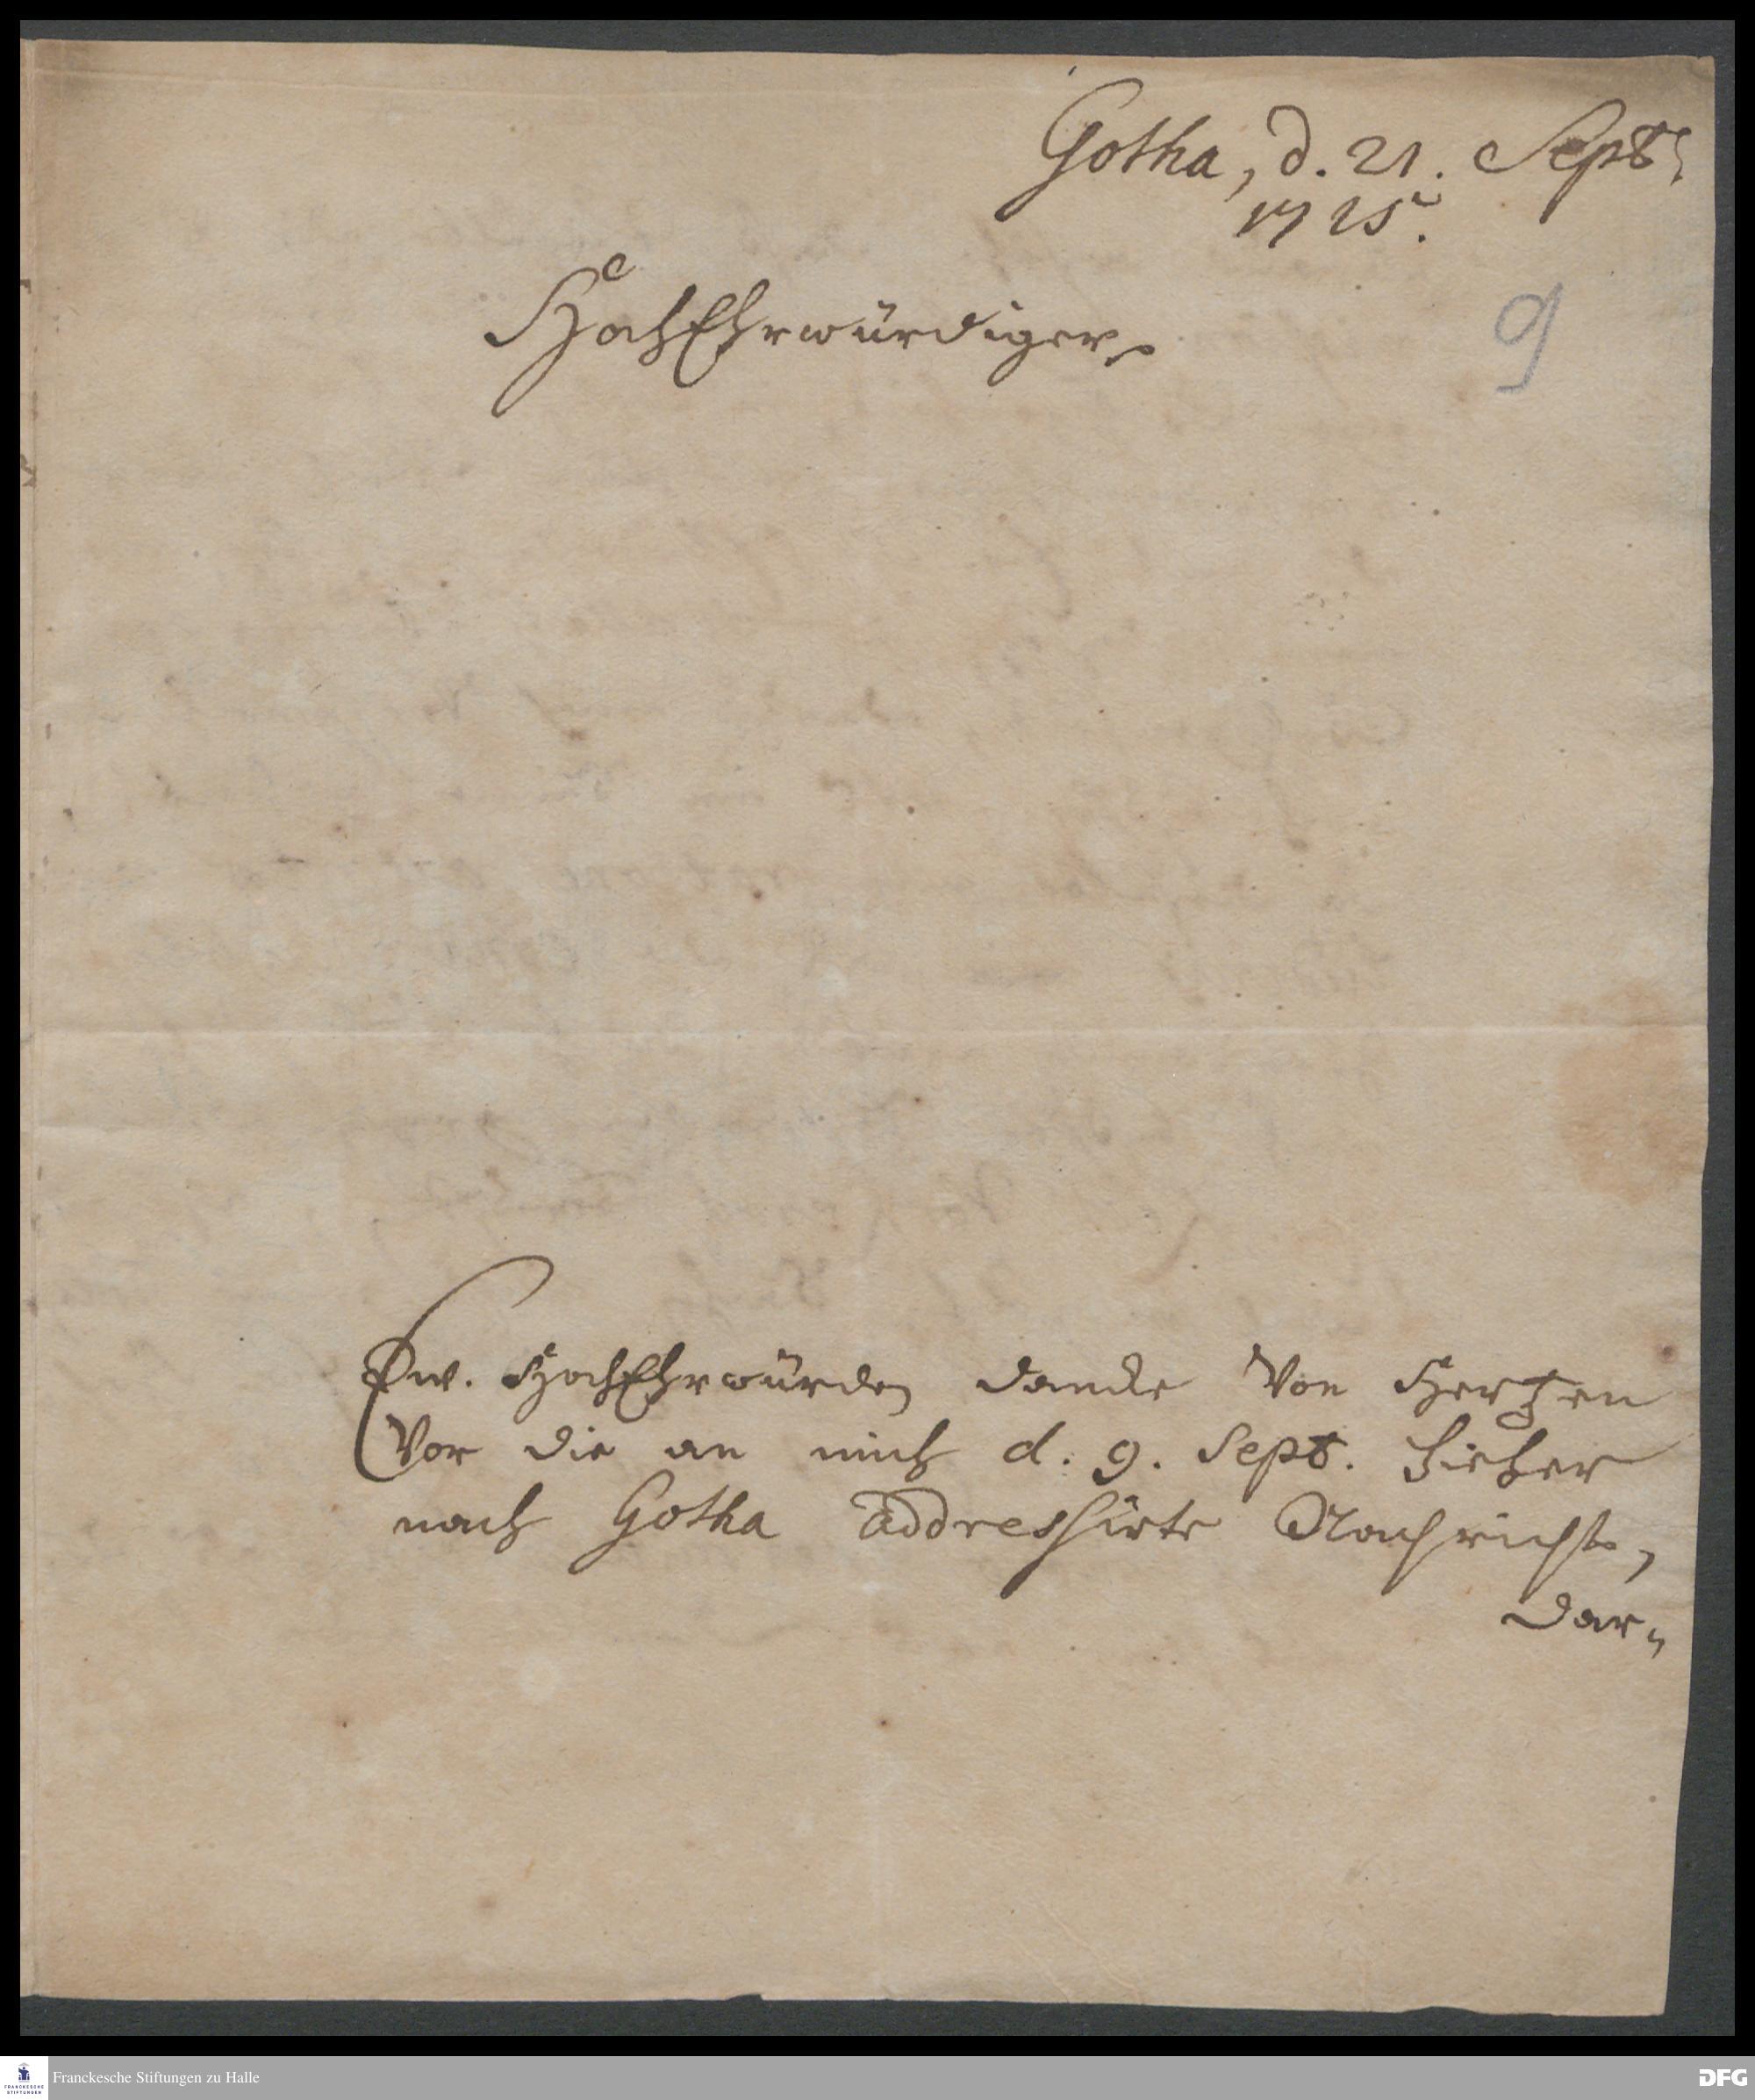 Gotha, d. 21. Sept.
1715.
9
HochEhrwürdiger,
Ew. HochEhrwürden dancke Von Hertzen
Vor die an mich d. 9. Sept. hieher
nach Gotha addressirte Nachricht,
dar„
Franckesche Stiftungen zu Halle
FRANCKESCHE
STIFTUNGEN
DFG